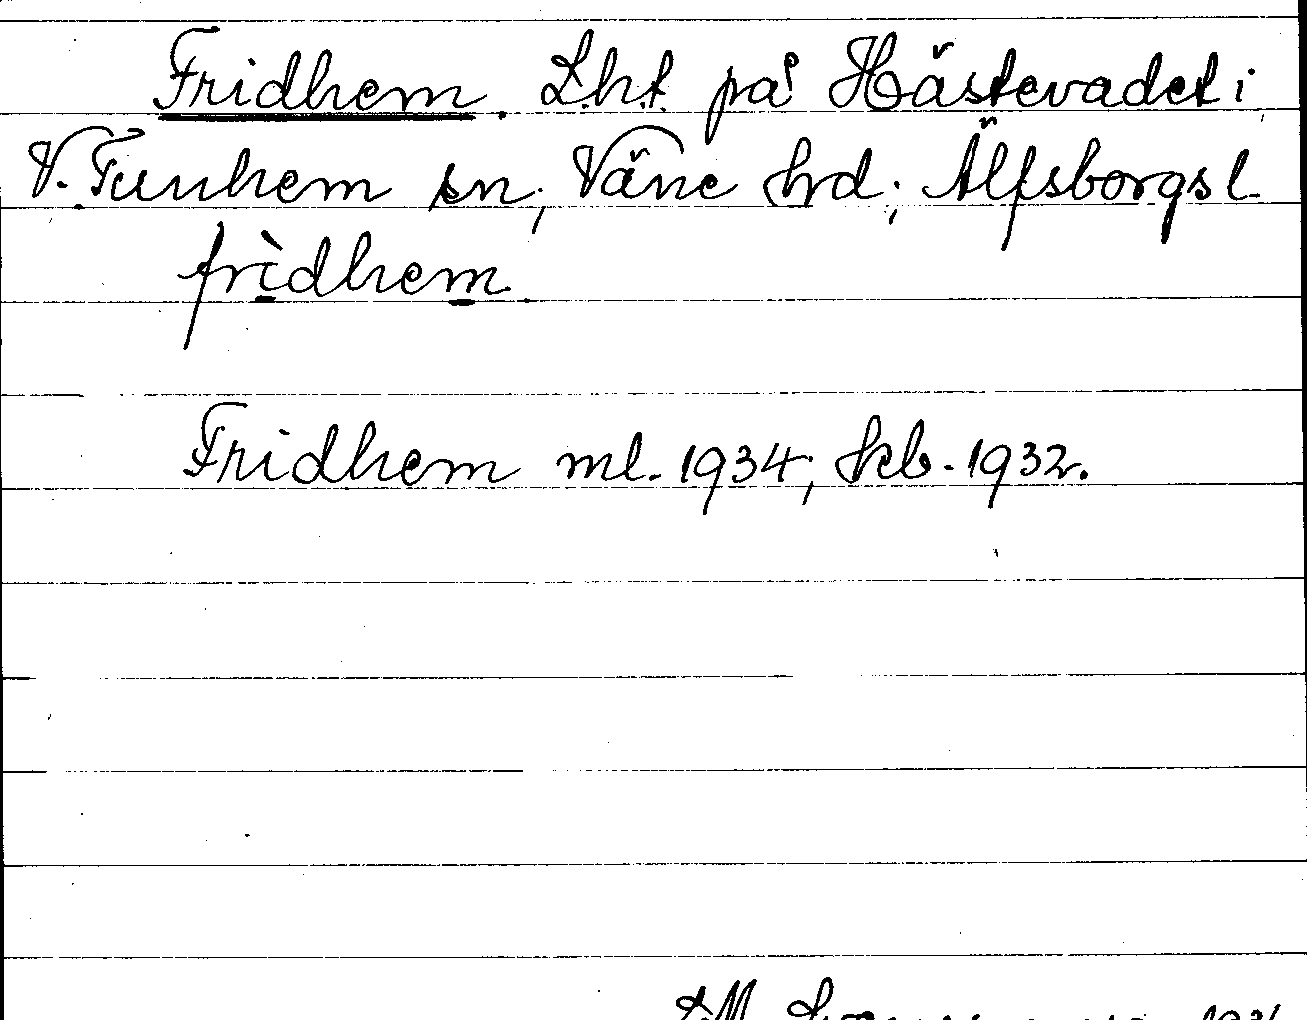 Fridhem. Lht på Hästevadet i
V. Tunhem sn, Väne hd; Älfsborgs l
frìdhem.
Fridhem ml. 1934; kb. 1932.